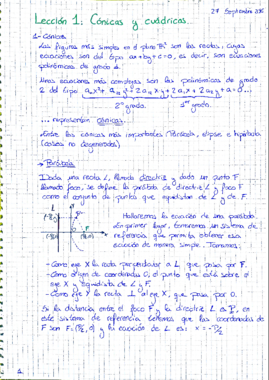 27 Septiembre
Lección 1: Cónicas y cuádricas...
1- Cónicas.
Las figuras más simples en el plano R² son las rectas, cuyas
ecuaciones son del tipo ax+by+c=0, es decir, son ecuaciones
polinómicas de grado 1.
Unas ecuaciones más complejas son las polinómicas de grado
2º grado. 1er grado.
... representan cónicas.
Entre las cónicas más importantes: Parábola, elipse e hipérbola
(casos no degenerados)
→ Parábola
Dada una recta L, llamada directriz y dado un punto F
llamado foco, se define la parábola de directriz L y foco F
como el conjunto de puntos que equidistan de L y de F.
Hallaremos la ecuación de una parábola.
En primer lugar, tomaremos un sistema de
referencia que permita obtener esa
ecuación de manera simple. Tomamos:
- Como eje X la recta perpendicular a L que pasa por F.
- Como origen de coordenadas O, el punto que está sobre el
eje X y equidista de L y F.
- Como eje Y la recta ⊥ al eje X, que pasa por O.
Si la distancia entre el foco F y la directriz L es P, en
este sistema de referencia tenemos que las coordenadas de
F son F=(P/2, 0) y la ecuación de L es: x = -P/2